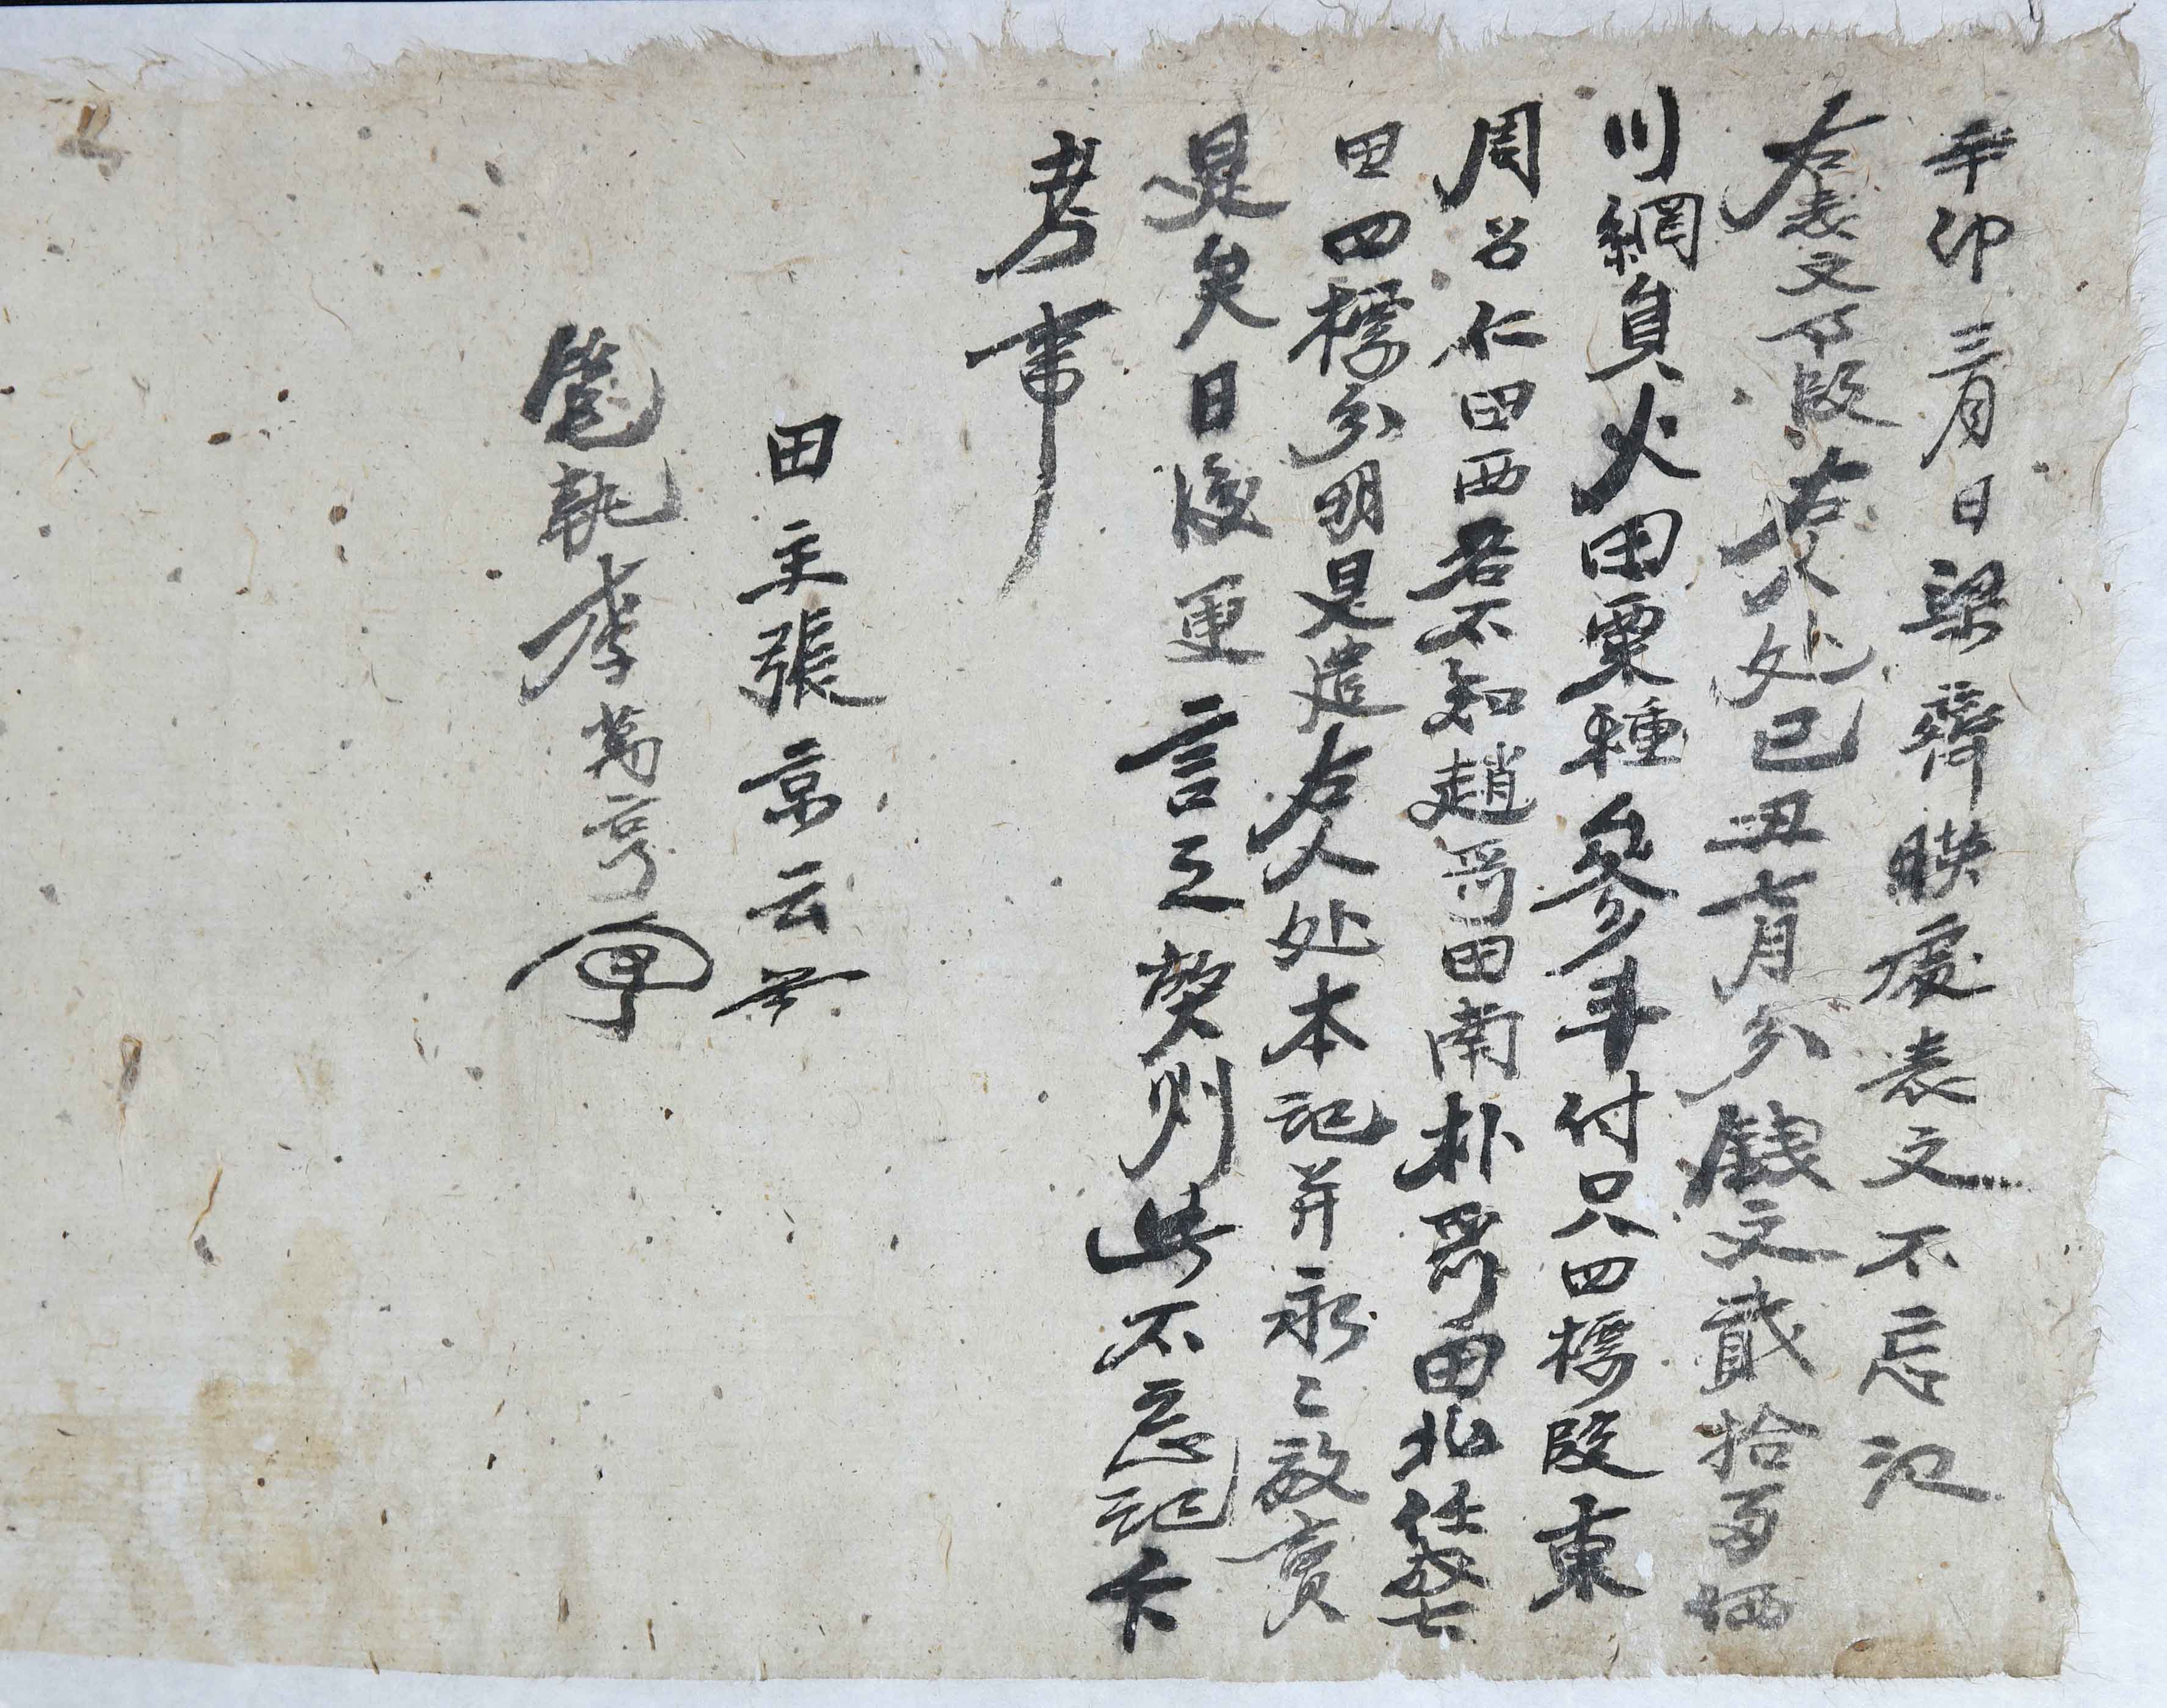 辛卯三月日梁齊暎處表文不忘記
右表文事段右人处已丑七月分錢文貳拾多価
川網負火田粟種參斗付只四標段東
周召仁田西君不知趙哥田南朴哥田北任哥
田四標分明是遣右人处本記并永々放賣
是矣日後更言之契則此不忘記卞
考事
田主張京云
筆執李萬亨